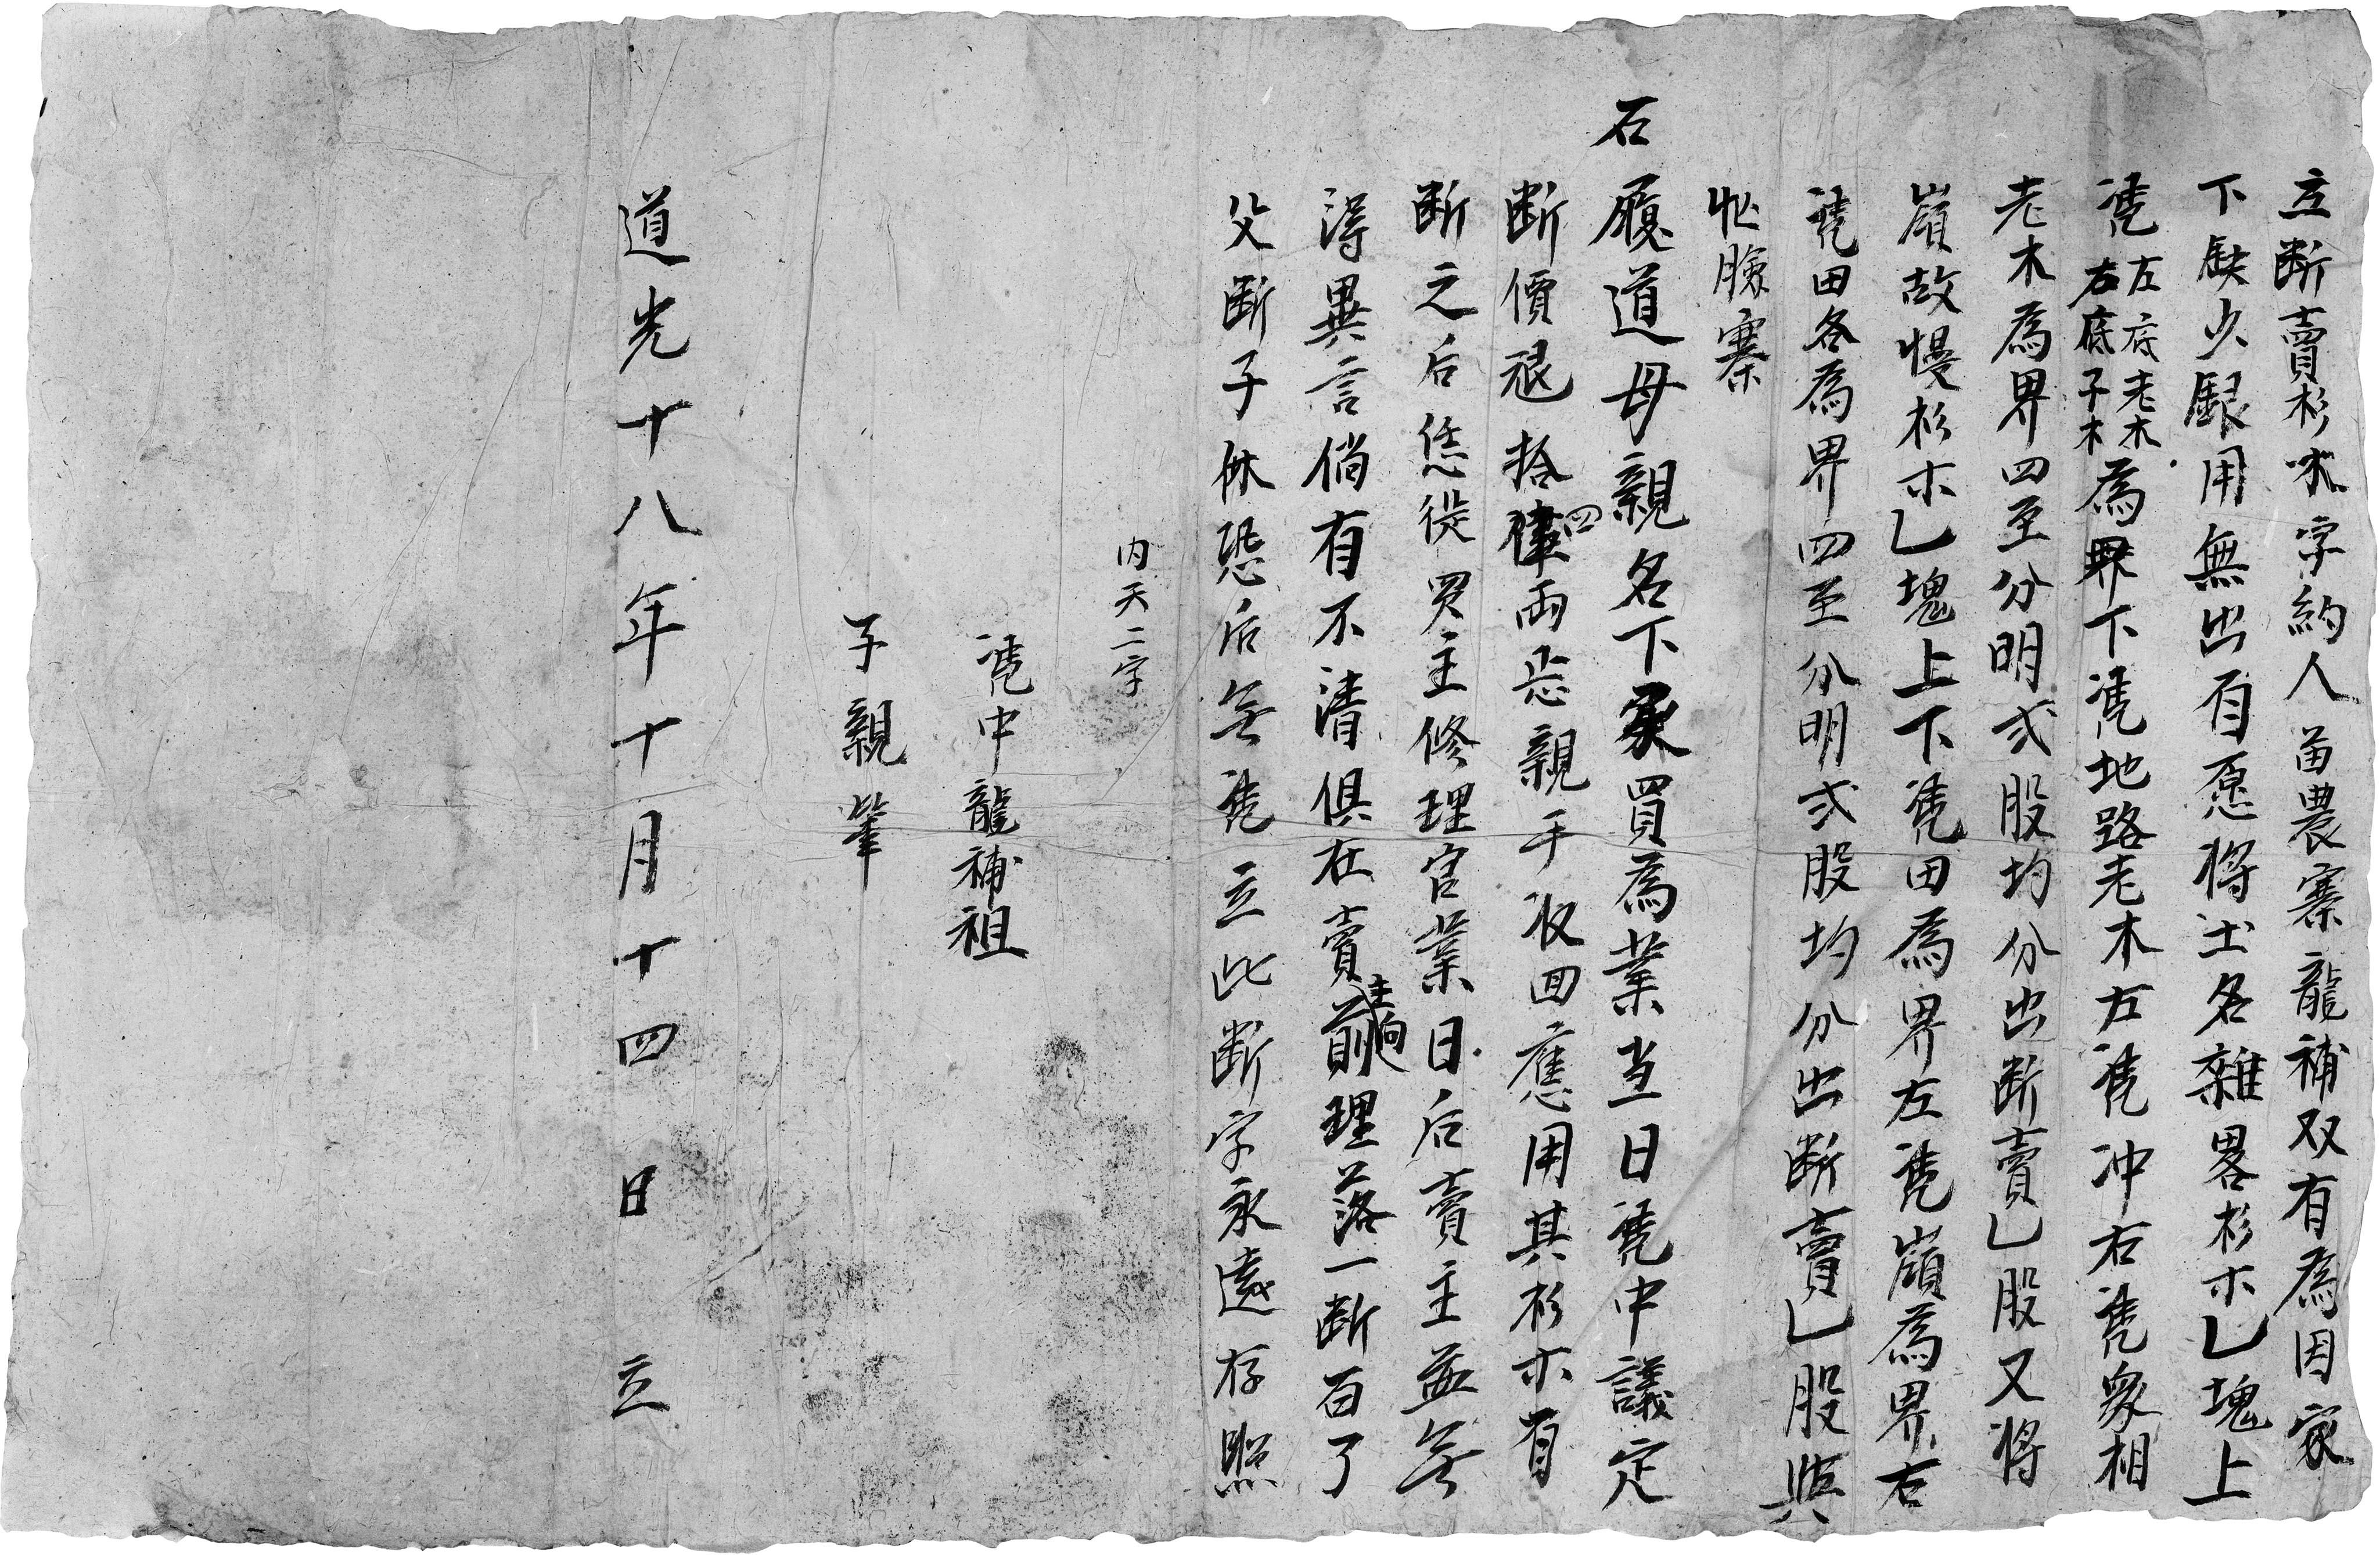 立断賣杉木字約人苗農寨龍補双有為因家
下缺少銀用無出自愿将土名雜畧杉木乙塊上
凴左底老木右底子木為界下凴地路老木左凴冲右凴衆相
老木為界四至分明弍股均分出断賣乙股又将
嶺故慢杉木乙塊上下凴田為界左凴嶺為界右
凴田各為界四至分明弍股均分出断賣乙股與
臉寨
石履道母親名下承買為業当日凴中議定
断價艮拾四両忝親手收回應用其杉木自
断之后恁從買主修理官業日后賣主並無
淂異言倘有不清俱在賣主向前理落一断百了
父断子休恐后無凴立此断字永遠存照
内天二字
凴中龍補祖
子親筆
道光十八年十月十四日立